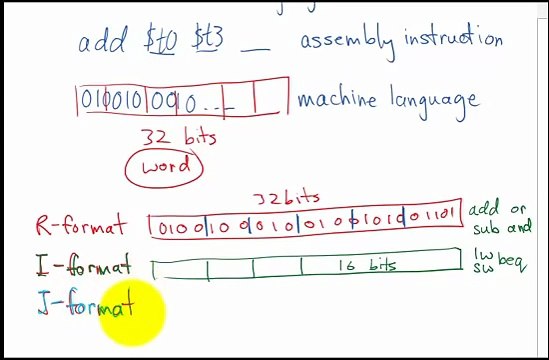 add $t0 $t3 __ assembly instruction
01001010010... machine language
32 bits
word
32 bits
R-format 010 0010 0010100101 0010100 01101 add or sub and
I-format 16 bits lw sw beq
J-format